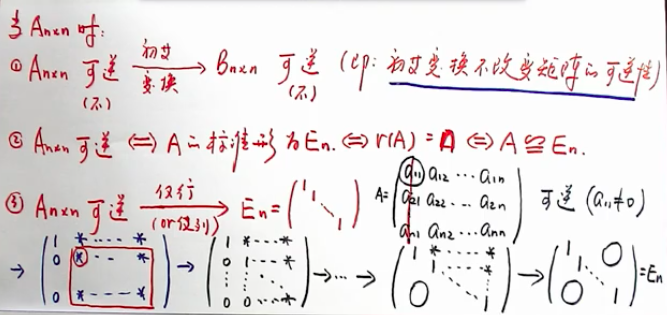 当 Aₙₓₙ 时:
① Aₙₓₙ 可逆 (不) 初等变换 → Bₙₓₙ 可逆 (不) (即: 初等变换不改变矩阵的可逆性)
② Aₙₓₙ 可逆 ⟺ A的标准形为Eₙ. ⟺ r(A) = n ⟺ A ≅ Eₙ.
③ Aₙₓₙ 可逆 仅行 (or仅列) → Eₙ = (1 1 ⋱ 1) A = (a₁₁ a₁₂ ⋯ a₁ₙ
a₂₁ a₂₂ ⋯ a₂ₙ
aₙ₁ aₙ₂ ⋯ aₙₙ) 可逆 (a₁₁≠0)
→ (1 * ⋯ * 0 * ⋯ * 0 * ⋯ *) → (1 * ⋯ * 0 1 ⋯ * ⋮ ⋮ 0 0 ⋯ *) → ⋯ → (1 * ⋯ * 1 ⋯ * 0 ⋱ 1) → (1 1 0 0 ⋱ 1) = Eₙ